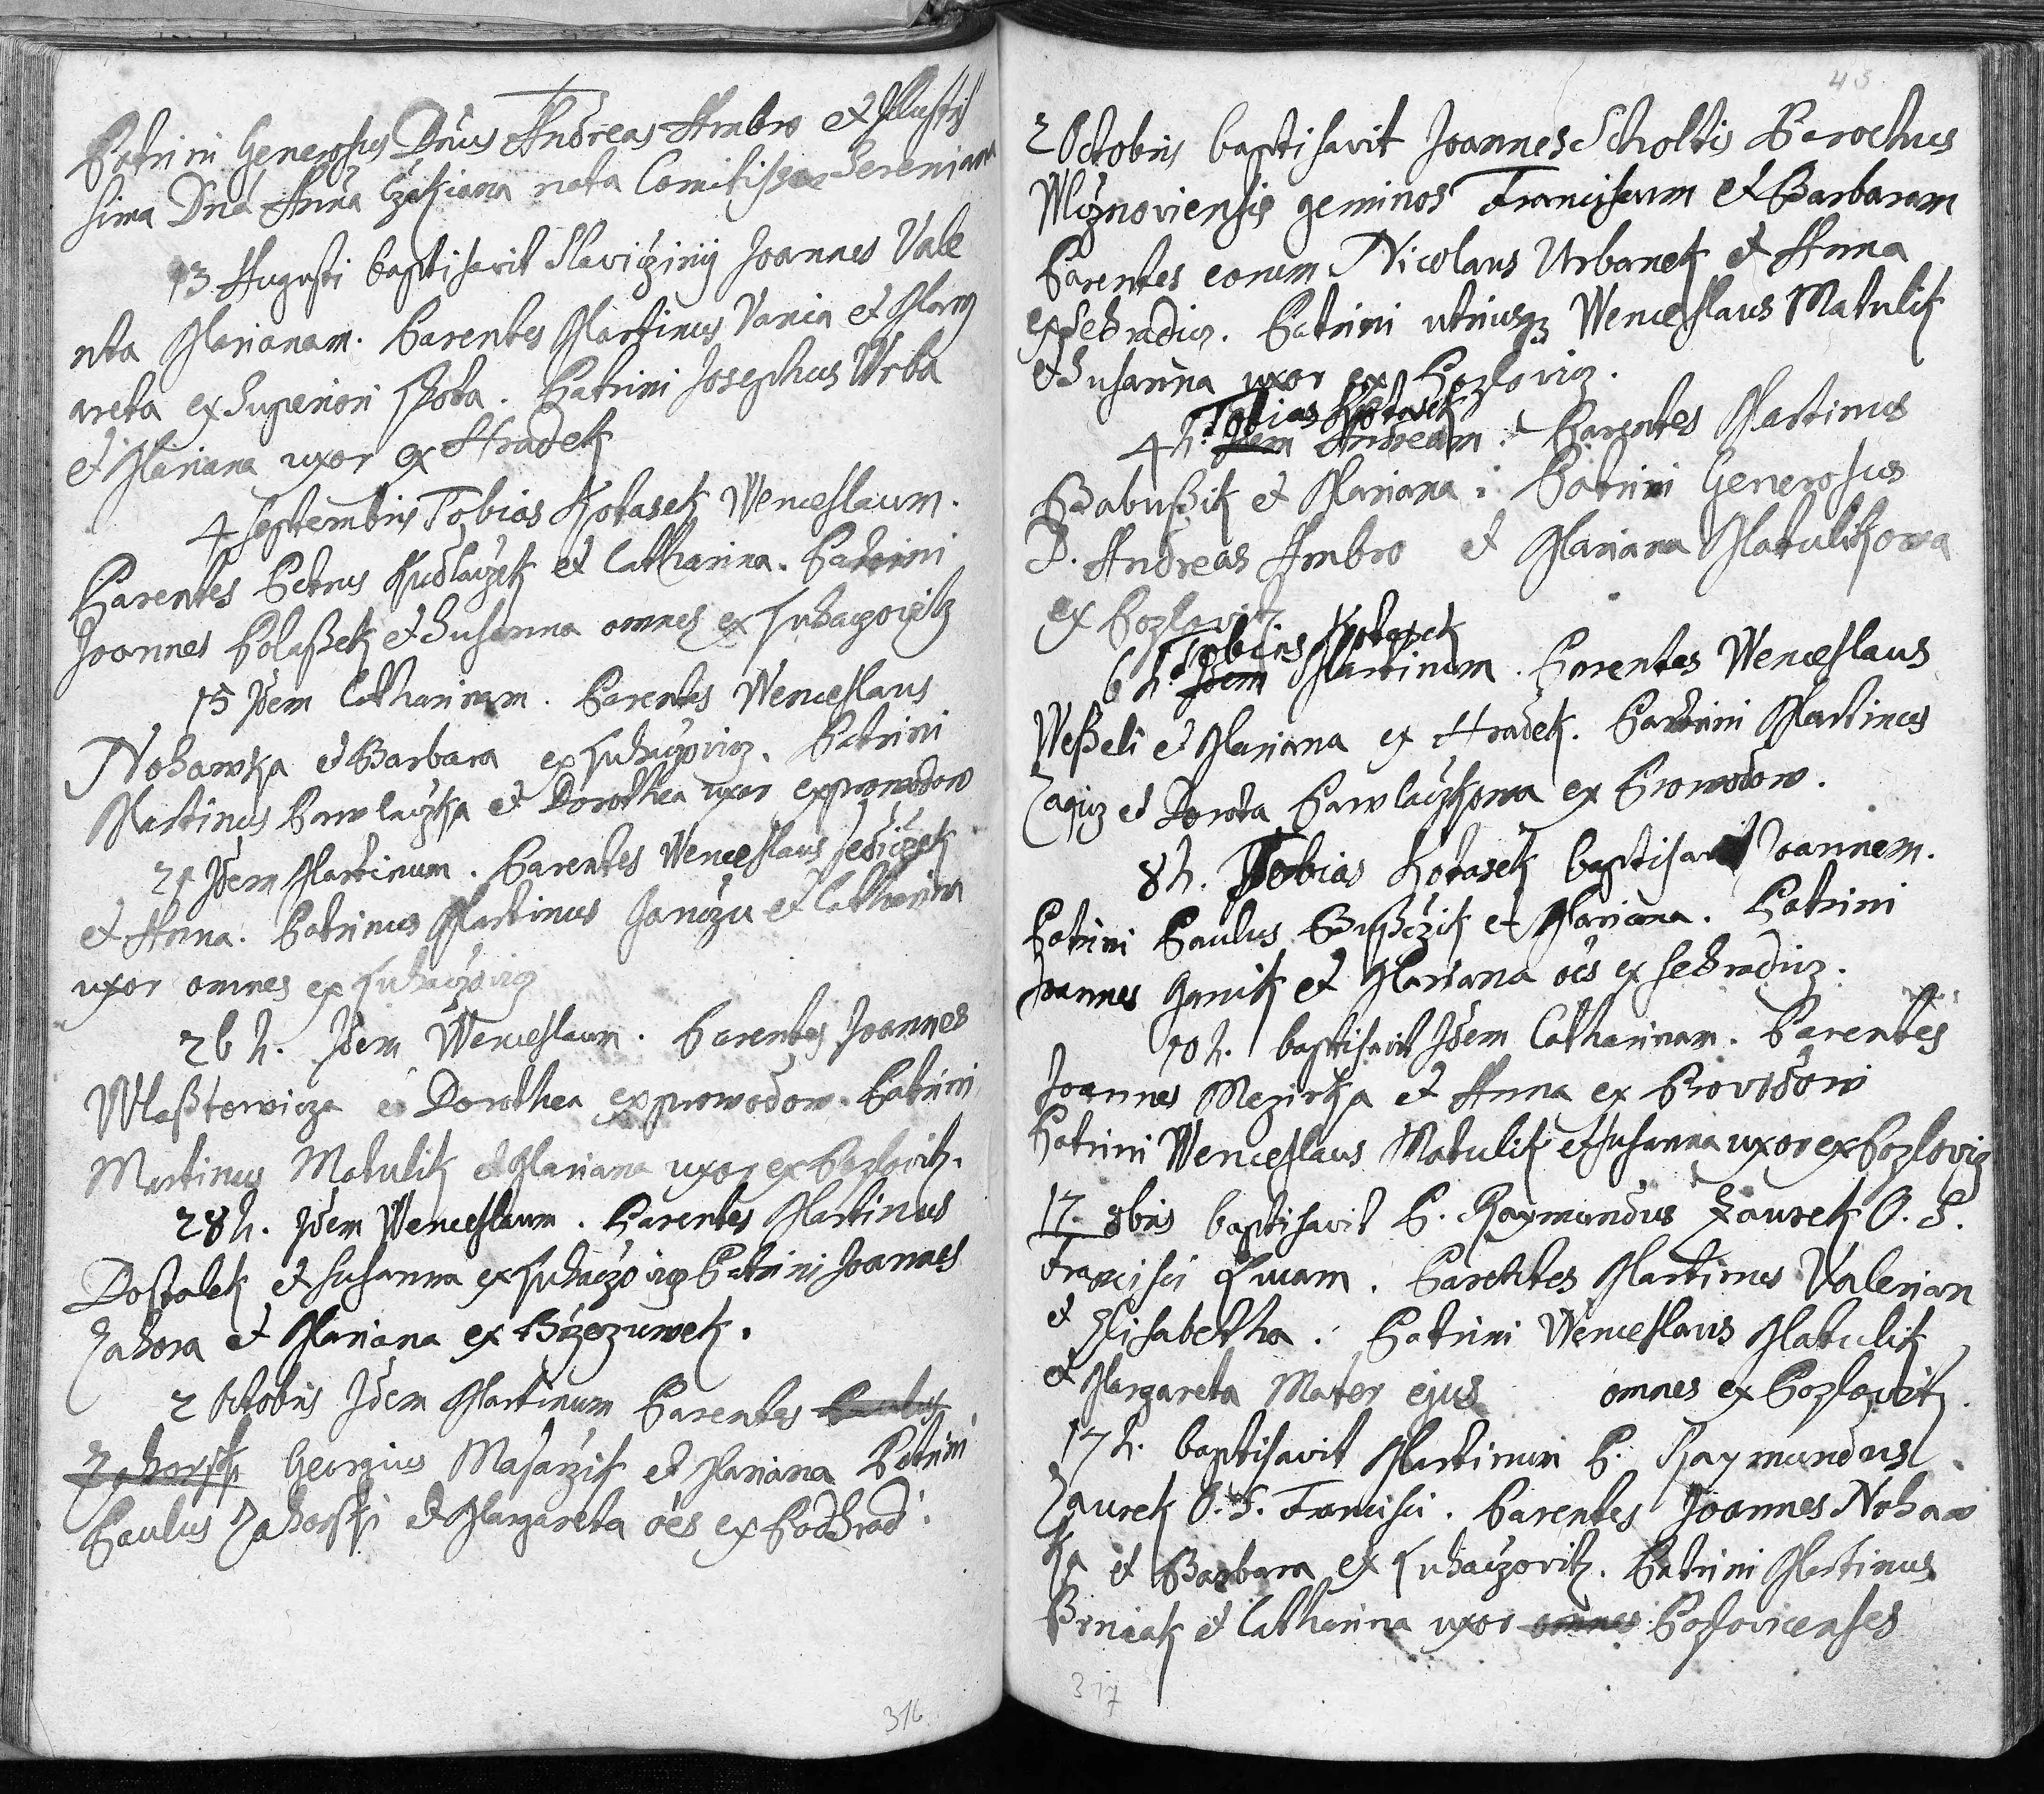 Patrini Generosus Dnus Andreas Ambro et Illustris
sima Dna Anna Czakiana nata Comitissa Sereniana
13 Augusti baptisavit Slaviczinij Joannes Vale
nta Marianam. Parentes Martinus Vania et Marg
areta ex Superiori Lhota. Patrini Josephus Urba
et Mariana uxor ex Hradek
4 Septembris Tobias Kotasek Wenceslaum.
Parentes Petrus Kudlaczek et Catharina. Patrini
Joannes Polaßek et Susanna omnes ex Luhaczovitz
15 Idem Catharinam. Parentes Wenceslaus
Nohawka et Barbara ex Luhaczovicz. Patrini
Martinus Pawlaczka et Dorothea uxor ex prowodow
21 Idem Martinum. Parentes Wenceslaus Sediczek
et Anna. Patrinus Martinus Janczu et Catharina
uxor omnes ex Luhaczovicz
26 h. Idem Wenceslaum. Parentes Joannes
Wlaßtowicza et Dorothea ex prowodow. Patrini
Martinus Matulik et Mariana uxor ex Pozlovitz.
28 h. Idem Wenceslaum. Parentes Martinus
Dostalek et Susanna ex Luhaczovicz Patrini Joannes
Zahora et Mariana ex Brzezuwek.
2 Octobris Idem Martinum Parentes Paulus
Zahorski Georgius Masarzik et Mariana Patrini
Paulus Zahorski et Margareta oes ex Podhrad.
316
43.
2 Octobris baptisavit Joannes Scholtis Parochus
Wizoviensis geminos Franciscum et Barbaram
Parentes eorum Nicolaus Urbanek et Anna
ex Sehradicz. Patrini utriusq3 Wenceslaus Matulik
et Susanna uxor ex Pozlovicz.
Tobias Kotasek
4 h. Idem Andream. Parentes Martinus
Babußik et Mariana. Patrini Generosus
D. Andreas Ambro et Mariana Matulikowa
ex Pozlovitz
Tobias Kotasek
6 h. Idem Martinum. Parentes Wenceslaus
Weßeli et Mariana ex Hradek. Patrini Martinus
et Dorota Pawlaczkowa ex Prowodow.
8 h. Tobias Kotasek baptisavit Joannem.
Patrini Paulus Bußczik et Mariana. Patrini
Joannes Ganik et Mariana oes ex Sehradicz.
10 h. baptisavit Idem Catharinam. Parentes
Joannes Mezirka et Anna ex Provodow
Patrini Wenceslaus Matulik et Susanna uxor ex Pozlovicz
17. 8bris baptisavit P. Raymundus Zaurek O. S.
Francisci Lucam. Parentes Martinus Valerian
et Elisabetha. Patrini Wenceslaus Matulik
et Margareta Mater ejus omnes ex Pozlovitz.
17 h. baptisavit Martinum P. Raymundus
Zaurek O. S. Francisci. Parentes Joannes Nohaw
ka et Barbara ex Luhaczovitz. Patrini Martinus
Prniak et Catharina uxor omnes Poslovicenses
317